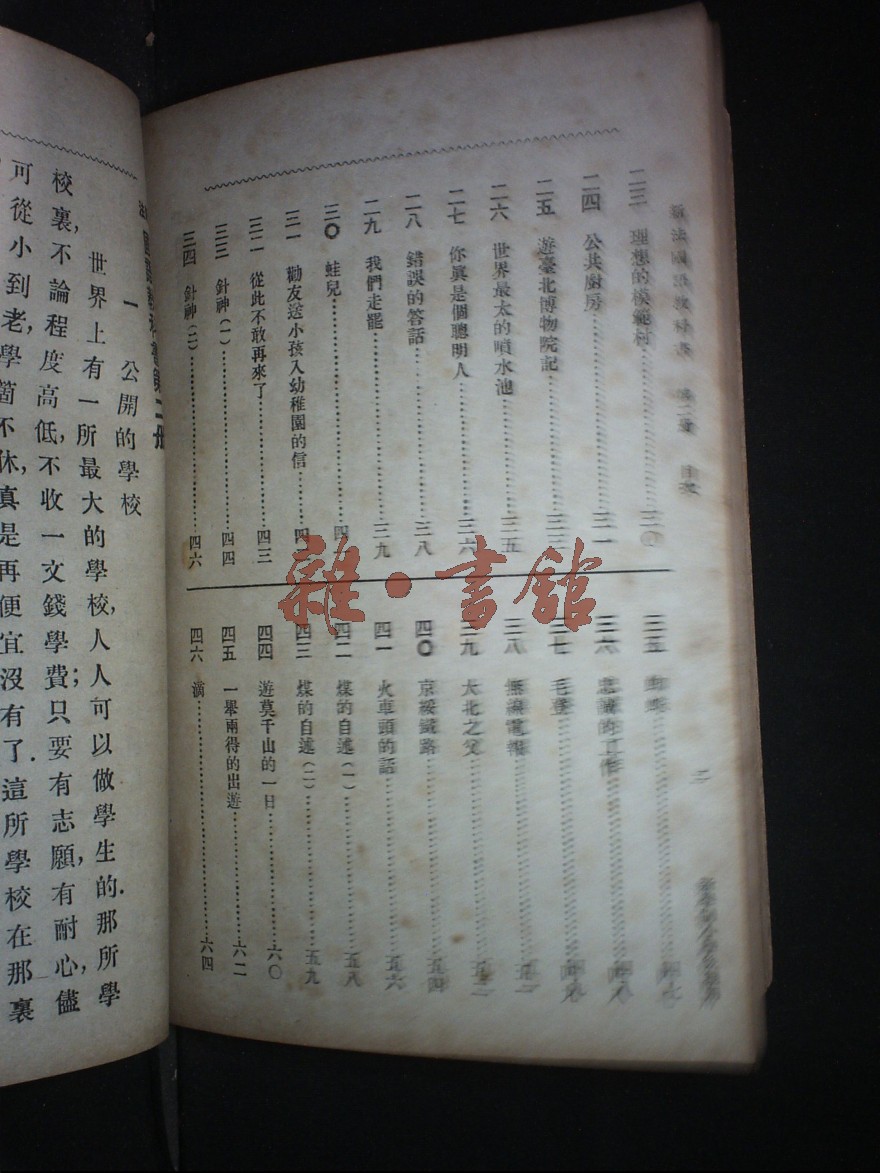 新法國語教科書 第二册 目次
二三 理想的模範村 三〇
二四 公共廚房 三一
二五 遊臺北博物院記 三三
二六 世界最大的噴水池 三五
二七 你眞是個聰明人 三六
二八 錯誤的答話 三八
二九 我們走罷 三九
三〇 蛙兒 四
三一 勸友送小孩入幼稚園的信 四
三二 從此不敢再來了 四三
三三 針神(一) 四四
三四 針神(二) 四六
三五
三六 忠誠的工作
三七 毛登
三八 無線電報 五二
三九 大北之父 五三
四〇 京綏鐵路 五四
四一 火車頭的話 五六
四二 煤的自述(一) 五八
四三 煤的自述(二) 五九
四四 遊莫干山的一日 六〇
四五 一舉兩得的出遊 六二
四六 滴 六四
二
雜·書館
第二册
一 公開的學校
世界上有一所最大的學校,人人可以做學生的.那所學
校裏,不論程度高低,不收一文錢學費;只要有志願,有耐心,儘
可從小到老,學箇不休,眞是再便宜沒有了.這所學校在那裏